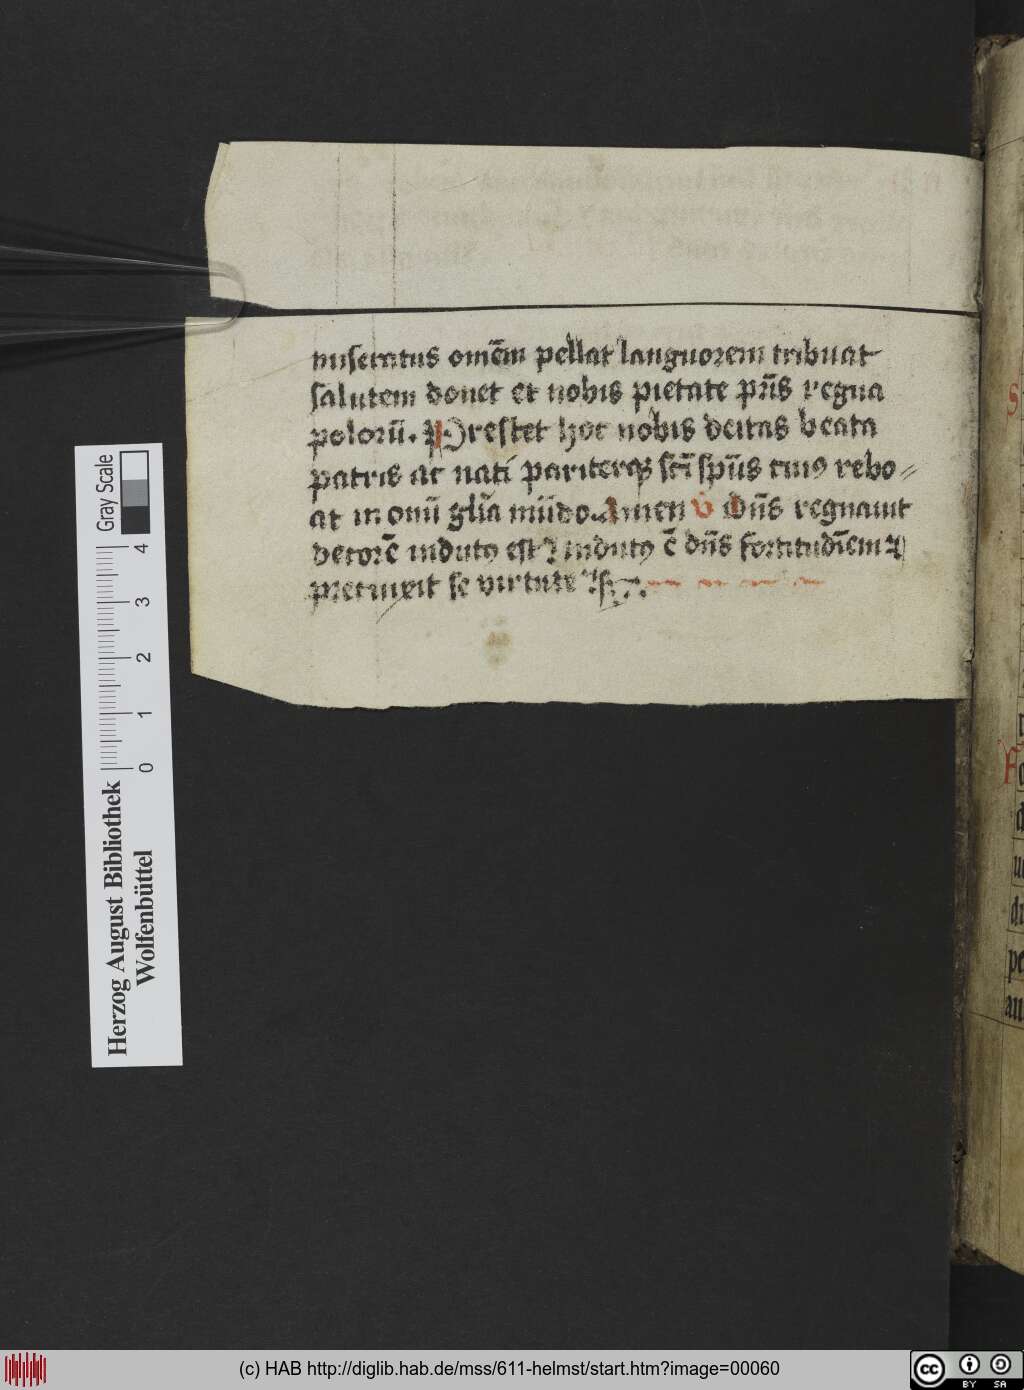 miseratus omēm pellat languorem tribuat
salutem donet et nobis pietate pr̄is regna
polorū. Prestet hoc nobis deitas beata
patris ac nati pariterqꝫ sc̄i sp̄us cuiꝯ rebo⸗
at in omī gl̄ia mūdo. Amen v̇ Dn̄s regnauit
decorē indutꝯ est Indutꝯ ē dn̄s fortitudīem ⁊
precinxit se virtute
Gray Scale
4
3
2
1
0
Herzog August Bibliothek
Wolfenbüttel
(c) HAB http://diglib.hab.de/mss/611-helmst/start.htm?image=00060
cc
BY SA